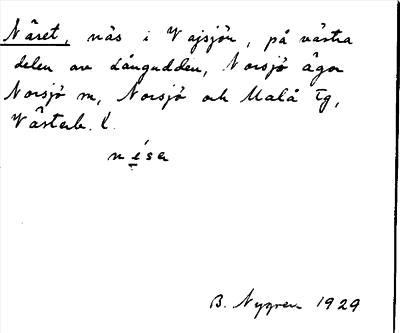 Näset, näs i Vajsjön, på västra
delen av Långudden, Norsjö ägor
Norsjö sn, Norsjö och Malå tg,
Västerb. l.
néset
B. Nygren 1929